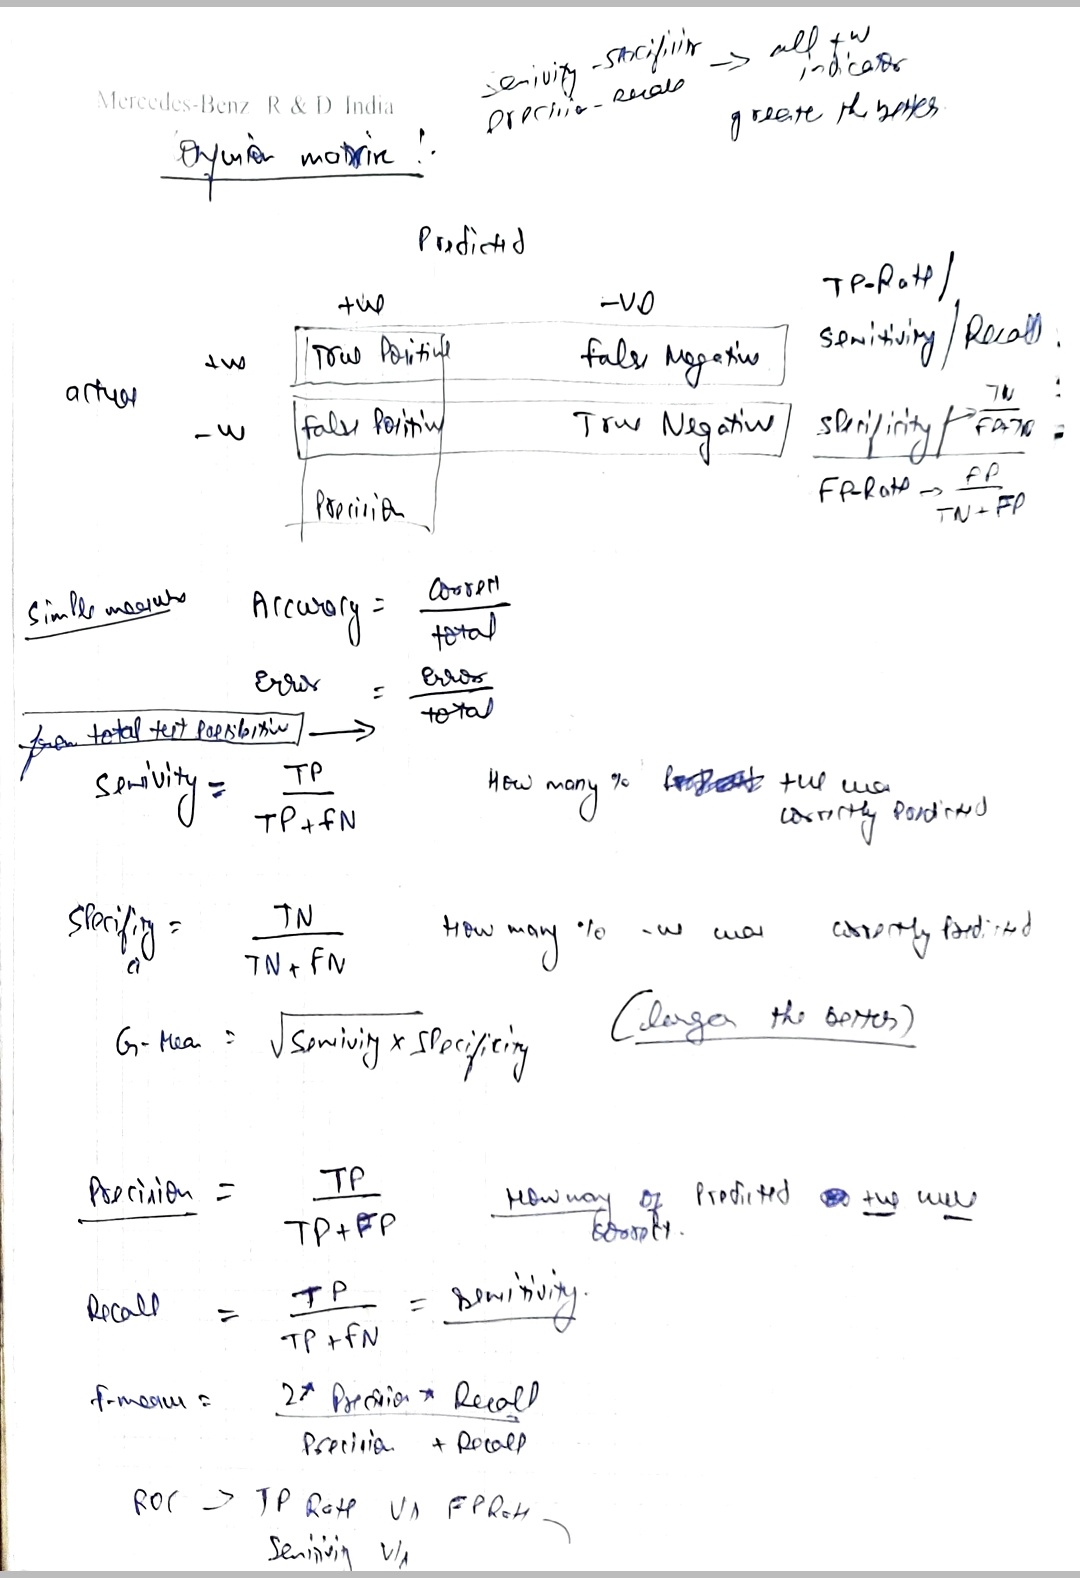 Mercedes-Benz R & D India
Senivity - Specificity → all +ve
Precision - Recall indicator
greater the better
matrix :
Predicted
+ve -ve
actual +ve True Positive False Negative
-ve False Positive True Negative
Precision
TP-Rate /
Sensitivity / Recall
Specificity → TN / FP+TN
FP-Rate → FP / TN + FP
Simple measures Accuracy = Correct / total
Error = Error / total
from total test →
Senivity = TP / TP + FN How many % +ve was
correctly Predicted
Specifity = TN / TN + FN How many % -ve was correctly Predicted
G-Mean = √ Senivity x Specificity (larger the better)
Precision = TP / TP + FP How many of Predicted +ve were
correct.
Recall = TP / TP + FN = Sensitivity.
f-measure = 2* Precision * Recall / Precision + Recall
ROC → TP Rate V/s FP Rate
Sensitivity V/s